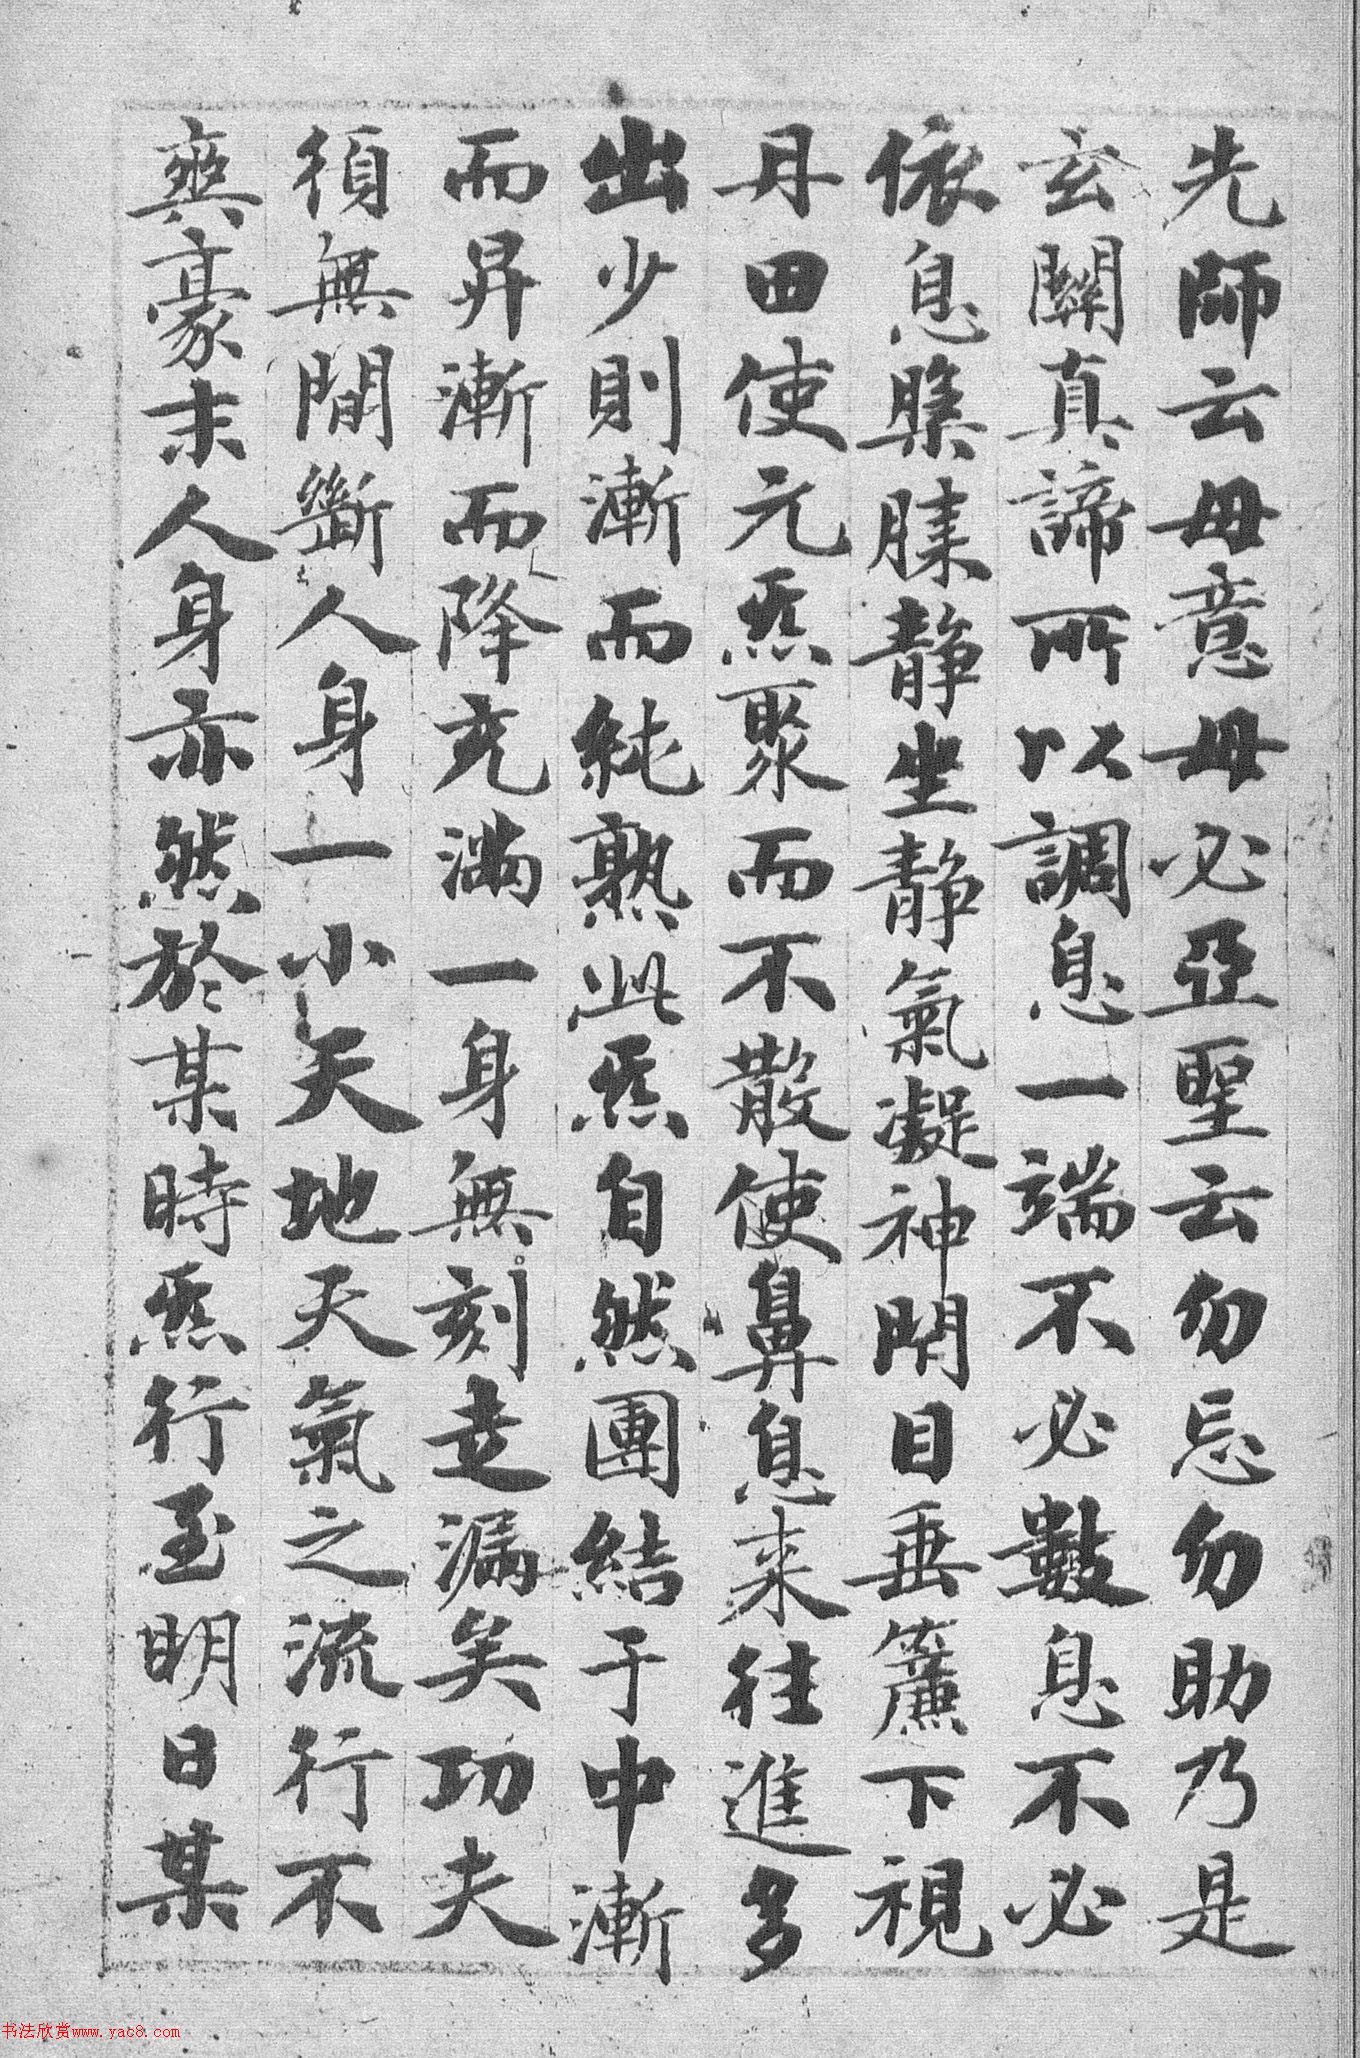 先師云毋意毋必亞聖云勿忘勿助乃是
玄關真諦所以調息一端不必數息不必
依息集膝靜坐靜氣凝神閉目垂簾下視
丹田使元炁聚而不散使鼻息来往進多
出少則漸而純熟此炁自然團結于中漸
而昇漸而降充滿一身無刻走漏矣功夫
須無間斷人身一小天地天氣之流行不
爽豪末人身亦然於某時炁行至明日某
书法欣赏www.yac8.com